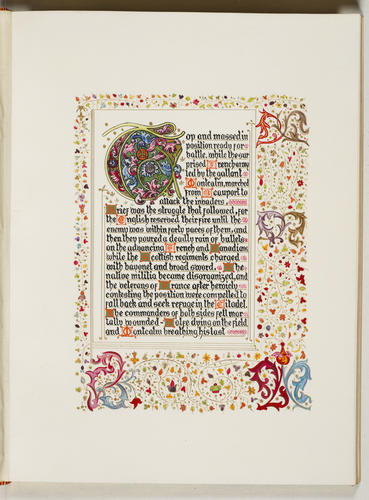 Top and massed in
position ready for
battle, while the sur
prised French army
led by the gallant
Montcalm, marched
from Beauport to
attack the invaders.
Brief was the struggle that followed, for
the English reserved their fire until the
enemy was within forty paces of them, and
then they poured a deadly rain of bullets
on the advancing French and Canadians
while the Scottish regiments charged
with bayonet and broad sword. The
native militia became disorganized, and
the veterans of France after heroicly
contesting the position were compelled to
fall back and seek refuge in the Citadel.
The commanders of both sides fell mor
tally wounded - Wolfe dying on the field,
and Montcalm breathing his last